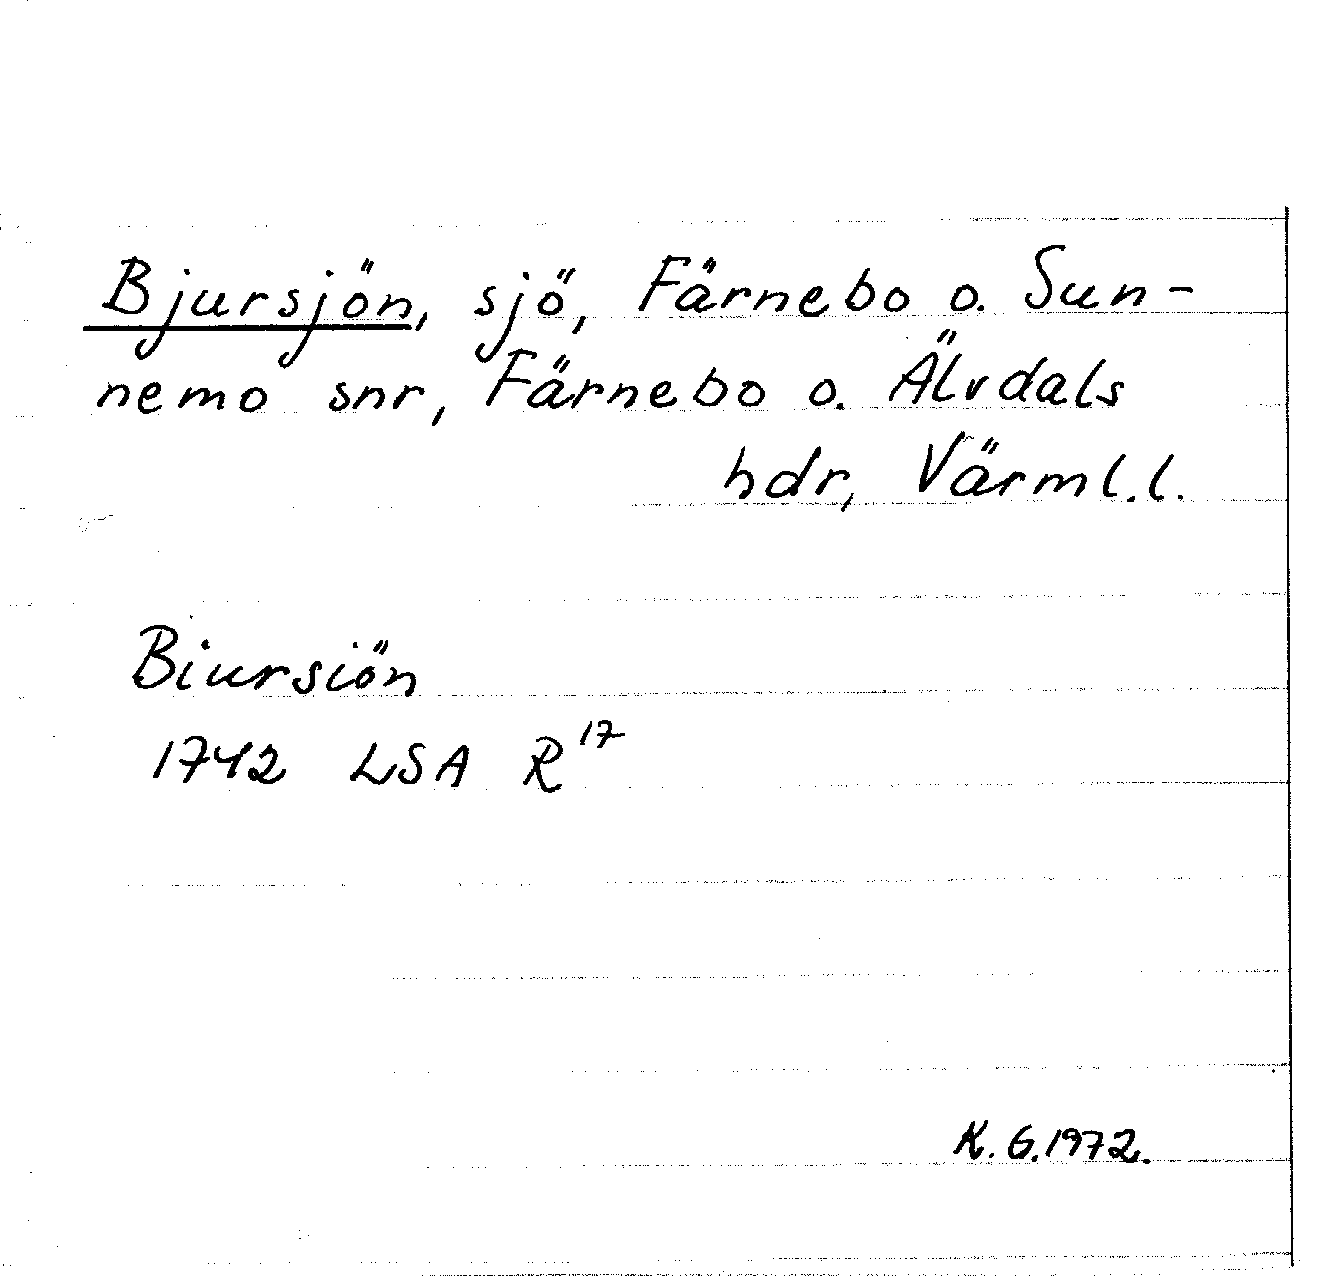 Bjursjön, sjö, Färnebo o. Sun-
nemo snr, Färnebo o. Älvdals
hdr, Värml.l.
Biursiön
1742 LSA R¹⁷
K.G.1972.